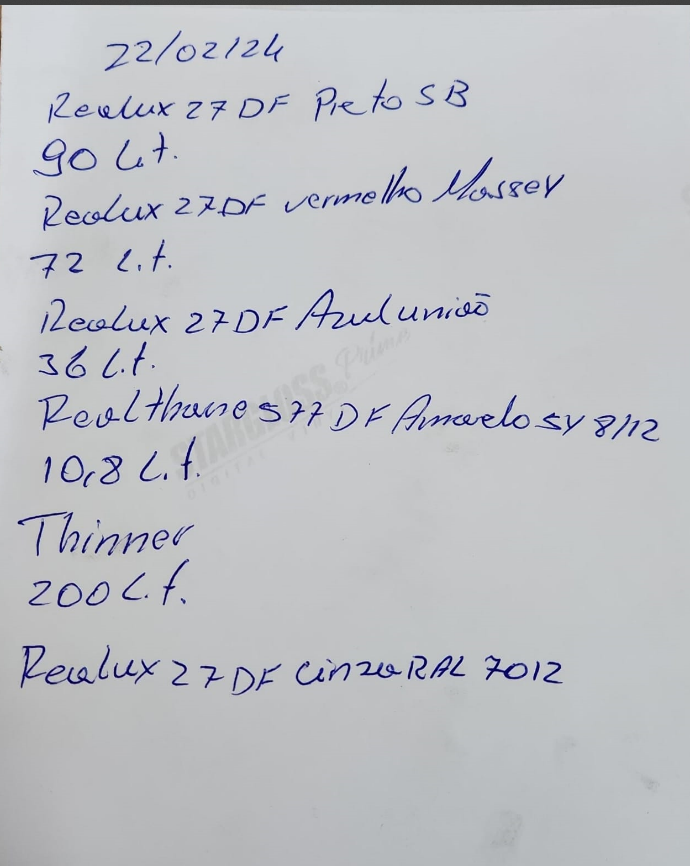 22/02/24
Realux 27 DF Preto SB
90 Lt.
Realux 27 DF vermelho Massey
72 L.t.
Realux 27 DF Azul união
36 L.t.
Realthane 577 DF Amarelo SY 8/12
10,8 L.t.
STARGLOSS Prime
DIGITAL
Thinner
200 L.t.
Realux 27 DF Cinza RAL 7012